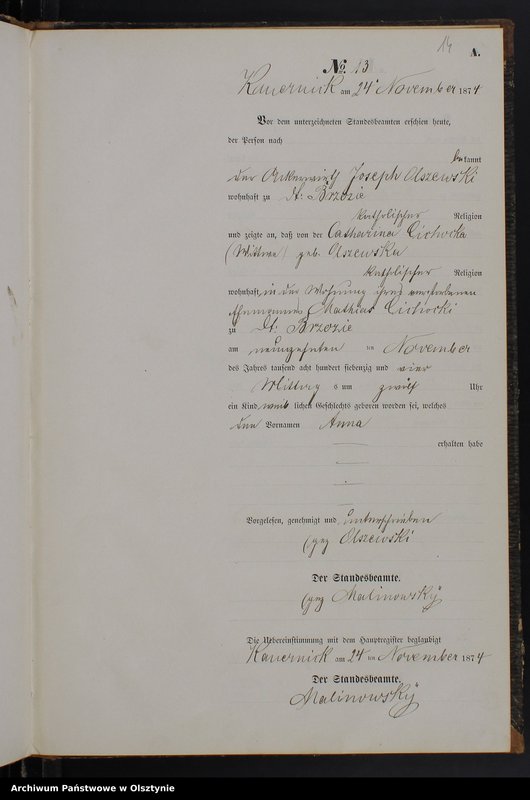 14
A.
No 13
Kauernick am 24t November 1874
Vor dem unterzeichneten Standesbeamten erschien heute,
der Person nach
bekannt
der Ackerwirth Joseph Olszewski
wohnhaft zu Dt: Brzozie
katholischer Religion
und zeigte an, daß von der Catharina Cichocka
(Wittwe) geb. Olszewska
katholischer Religion
wohnhaft in der Wohnung ihres verstorbenen
Ehemannes Mathias Cichocki
zu Dt: Brzozie
am neunzehnten ten November
des Jahres tausend acht hundert siebenzig und vier
Mittag s um zwölf Uhr
ein Kind weib lichen Geschlechts geboren worden sei, welches
den Vornamen Anna
erhalten habe
Vorgelesen, genehmigt und unterschrieben
(gez Olszewski
Der Standesbeamte.
(gez Malinowsky
Die Uebereinstimmung mit dem Hauptregister beglaubigt
Kauernick am 24 ten November 1874
Der Standesbeamte.
Malinowsky
Archiwum Państwowe w Olsztynie